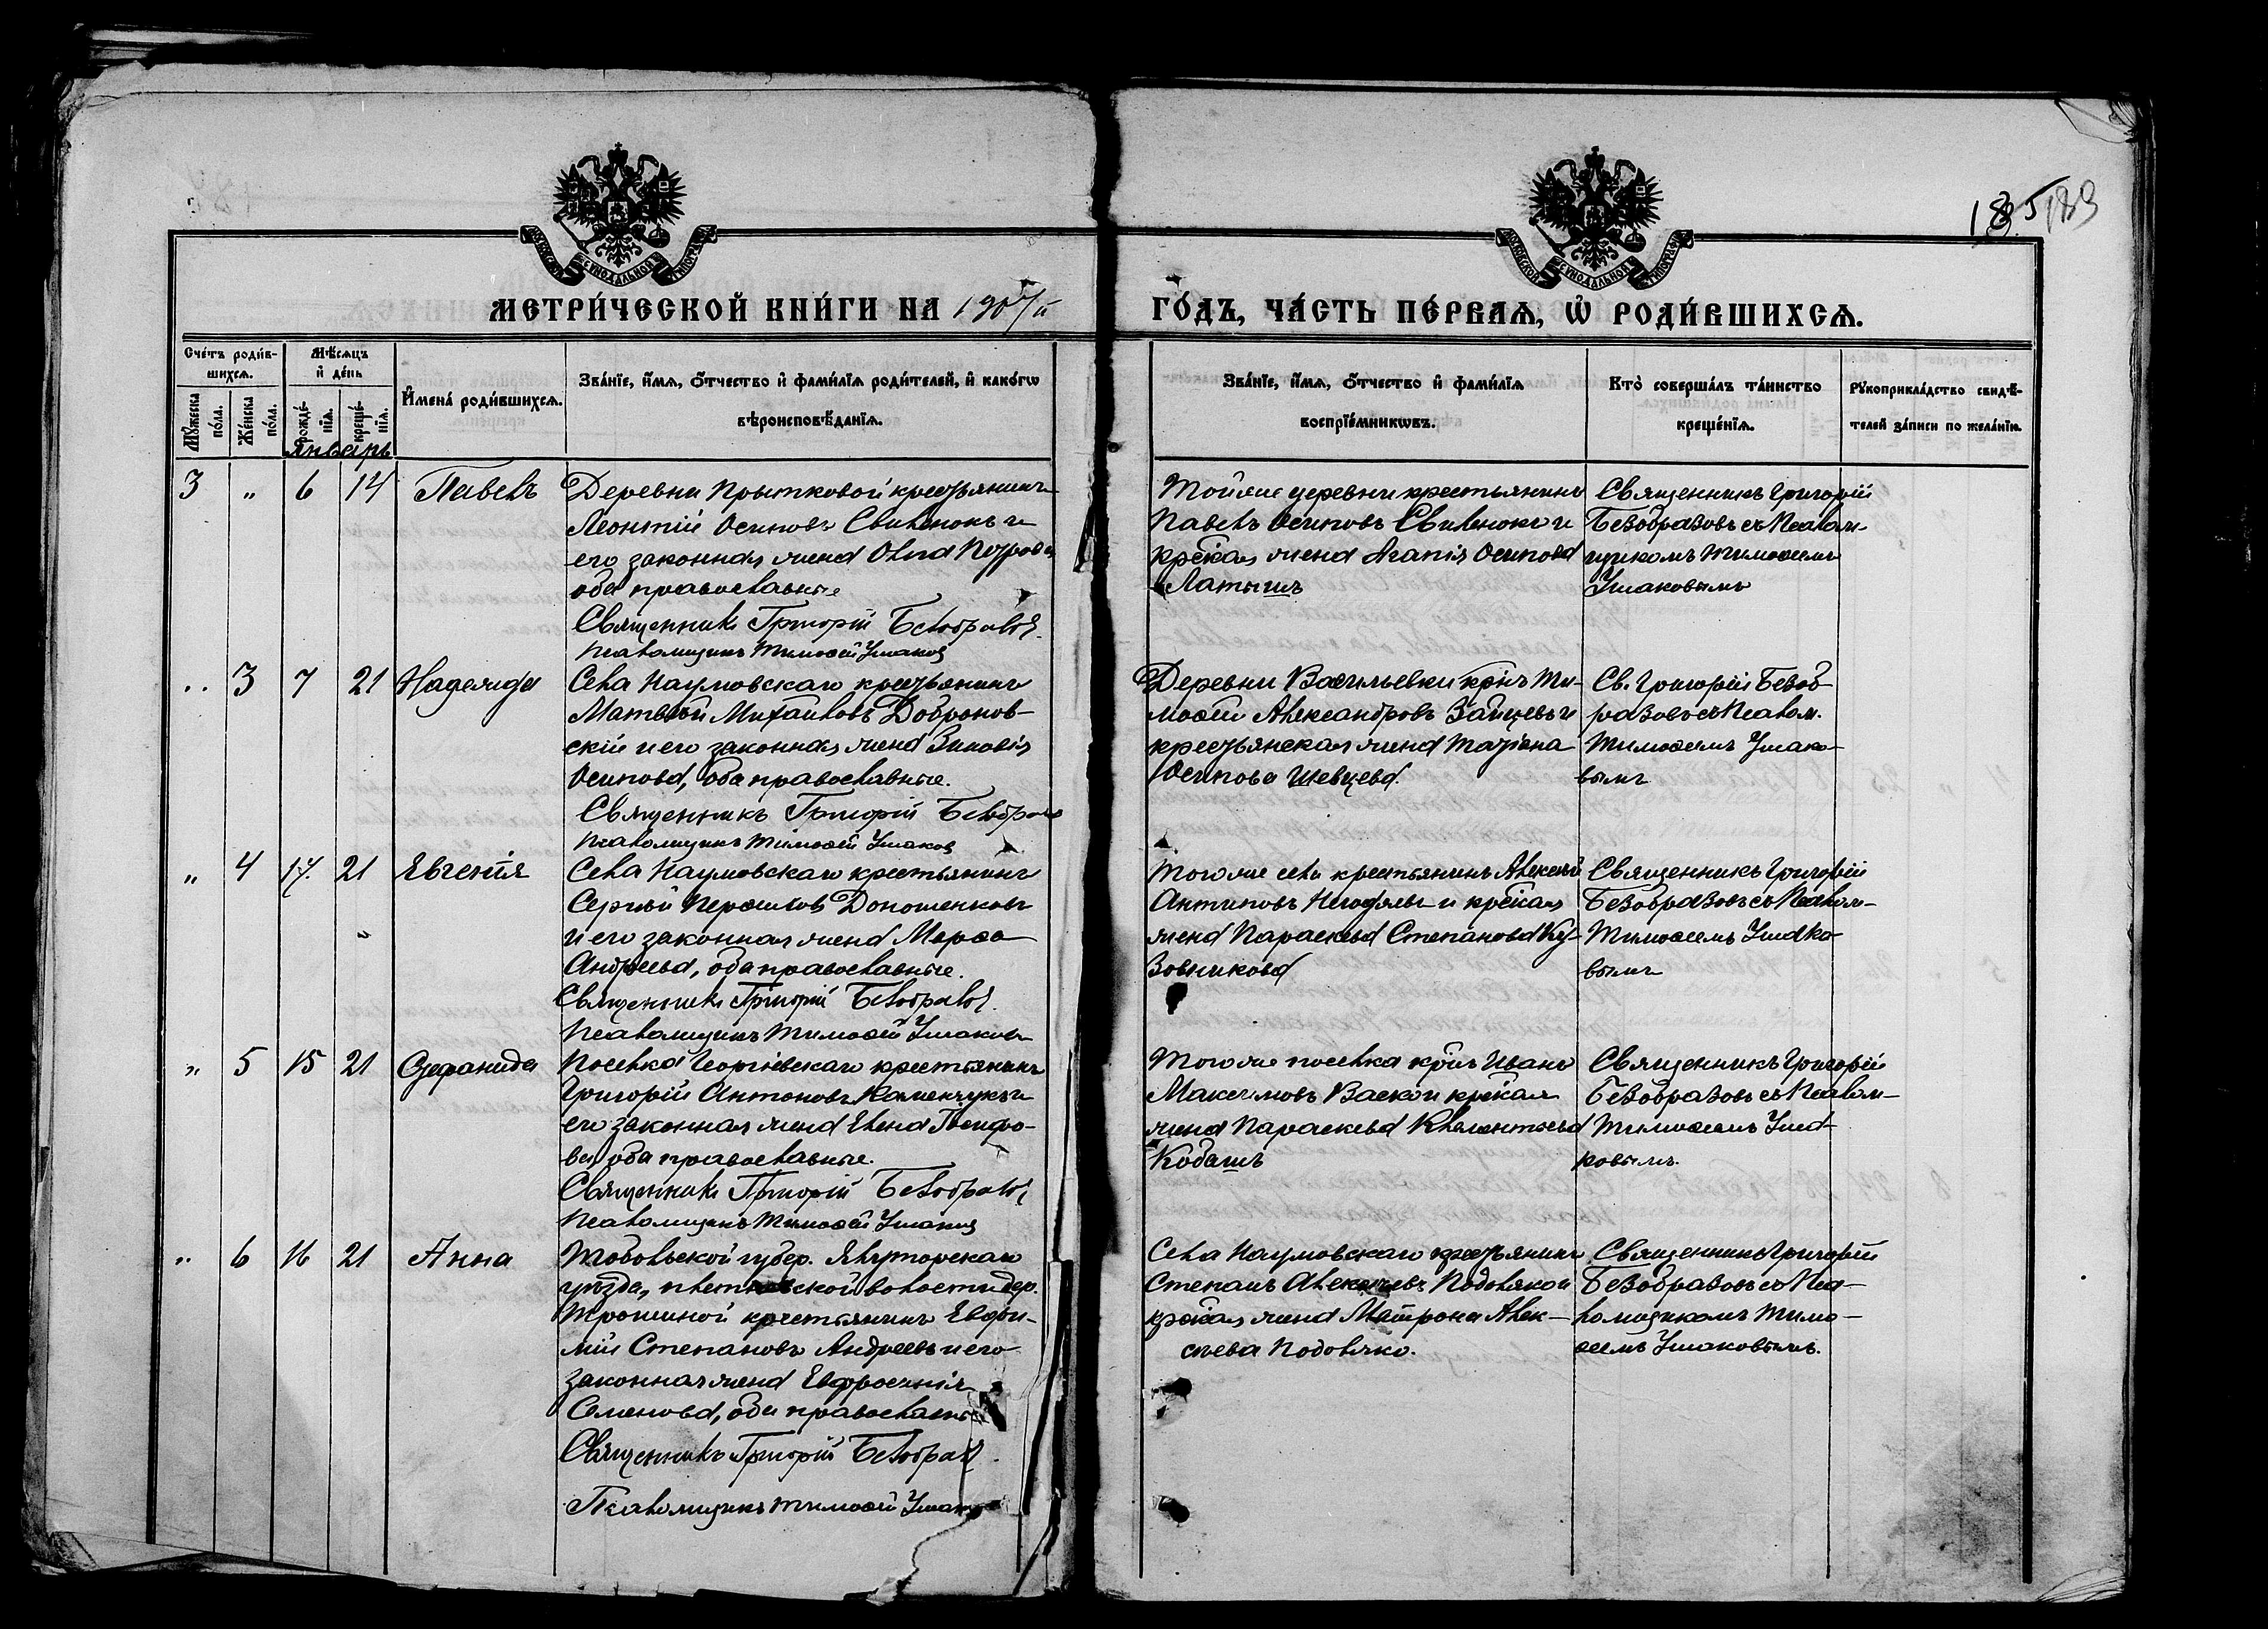 185 189
МОСКОВСКОЙ СѴНОДАЛЬНОЙ ТИПОГРАФІИ
МОСКОВСКОЙ СѴНОДАЛЬНОЙ ТИПОГРАФІИ
МЕТРИ́ЧЕСКОЙ КНИ́ГИ НА 1907/й ГО́ДЪ, ЧА́СТЬ ПЕ́РВАѦ, Ѡ҆ РОДИ́ВШИХСѦ.
Сче́тъ роди́в-
шихсѧ.
Мꙋ́жеска по́ла.
Же́нска по́ла.
Мѣ́сѧцъ
и҆ де́нь
рожде́нїѧ.
креще́нїѧ.
Январь
И҆мена̀ роди́вшихсѧ.
Зва́нїе, и҆́мѧ, ѻ҆́тчество и҆ фами́лїѧ роди́телей, и҆ како́гѡ
вѣроисповѣ́данїѧ.
Зва́нїе, и҆́мѧ, ѻ҆́тчество и҆ фами́лїѧ
воспрїе́мникѡвъ.
Кто̀ соверша́лъ та́инство
креще́нїѧ.
Рꙋкоприкла́дство свидѣ́-
телей за́писи по жела́нїю.
3 " 6 14 Павелъ
Деревни Прытковой крестьянинъ
Леонтій Осиповъ Свиленокъ и
его законная жена Ольга Петрова
оба православные
Священникъ Григорій Безобразовъ.
Псаломщикъ Тимоѳей Ушаковъ
Тойже деревни крестьянинъ
Павелъ Осиповъ Свиленокъ и
крестькая жена Агапія Осипова
Латышъ
Священникъ Григорій
Безобразовъ съ Псалом-
щикомъ Тимоѳеемъ
Ушаковымъ
" 3 7 21 Надежда
Села Наумовскаго крестьянинъ
Матвѣй Михаиловъ Добронов-
скій и его законная жена Зиновія
Осипова, оба православные.
Священникъ Григорій Безобразовъ
Псаломщикъ Тимоѳей Ушаковъ
Деревни Васильевки крнъ Ти-
моѳей Александровъ Зайцевъ и
крестьянская жена Татіана
Осипова Шевцева.
Св. Григорій Безоб-
разовъ съ Псалом.
Тимоѳеемъ Ушако-
вымъ
" 4 14. 21 Евгенія
Села Наумовскаго крестьянинъ
Сергѣй Доношенковъ
и его законная жена Марѳа
Андреева, оба православные.
Священникъ Григорій Безобразовъ.
Псаломщикъ Тимоѳей Ушаковъ
Тогоже села крестьянинъ Алексѣй
Антиповъ Негодяевъ и крестькая
жена Параскева Степанова Ку-
зовникова
Священникъ Григорій
Безобразовъ съ Псалом-
Тимоѳеемъ Ушако-
вымъ
" 5 15 21 Стефанида
Поселка Георгіевскаго крестьянинъ
Григорій Антоновъ Каменчукъ и
его законная жена Елена Іосифо-
ва, оба православные.
Священникъ Григорій Безобразовъ
Псаломщикъ Тимоѳей Ушаковъ
Тогоже поселка крнъ Иванъ
Максимовъ Васкои крестькая
жена Параскева Клементьева
Кобашъ
Священникъ Григорій
Безобразовъ съ Псалом-
Тимоѳеемъ Уша-
ковымъ.
" 6 16 21 Анна
Тобольской губер. Ялуторскаго
уѣзда, волости дер.
Трошиной крестьянинъ Евфи-
мій Степановъ Андреевъ и его
законная жена Евфросинія
Семенова, оба православные
Священникъ Григорій Безобразовъ.
Псаломщикъ Тимоѳей Ушаковъ
Села Наумовскаго крестьянинъ
Степанъ Алексѣевъ Подоляко и
крестькая жена Матрона Алек-
сѣева Подоляко.
Священникъ Григорій
Безобразовъ съ Пса-
ломщикомъ Тимо-
ѳеемъ Ушаковымъ.